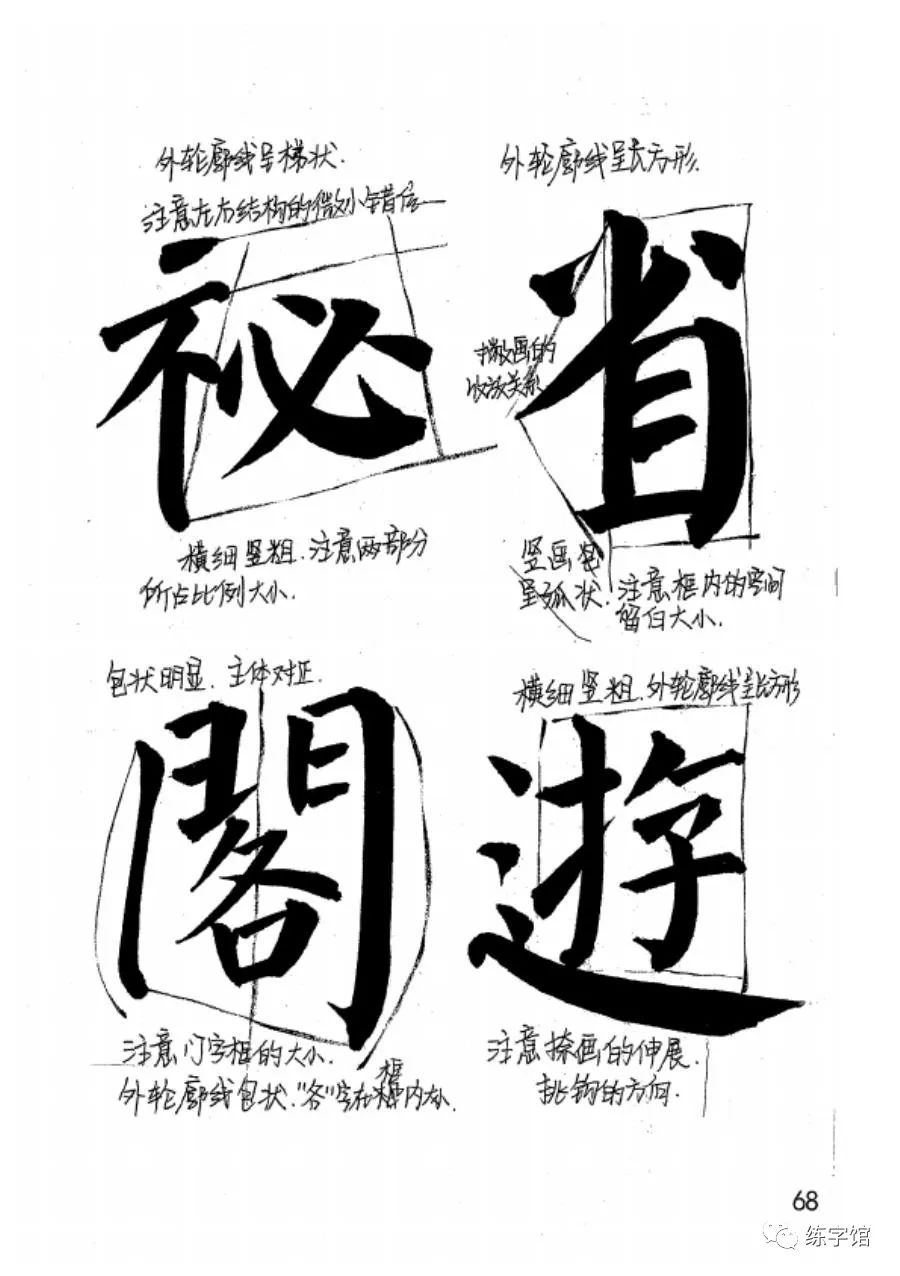 外轮廓线呈梯状.
注意左右结构的微小错位
祕
横细竖粗.注意两部分
所占比例大小.
外轮廓线呈长方形.
省
撇画的
收放关系
竖画包
呈弧状.注意框内的空间
留白大小.
包状明显.主体对正.
閣
注意门字框的大小.
外轮廓线包状."各"字在框内大小.
横细竖粗.外轮廓线呈长方形
遊
注意捺画的伸展.
挑钩的方向.
68
练字馆